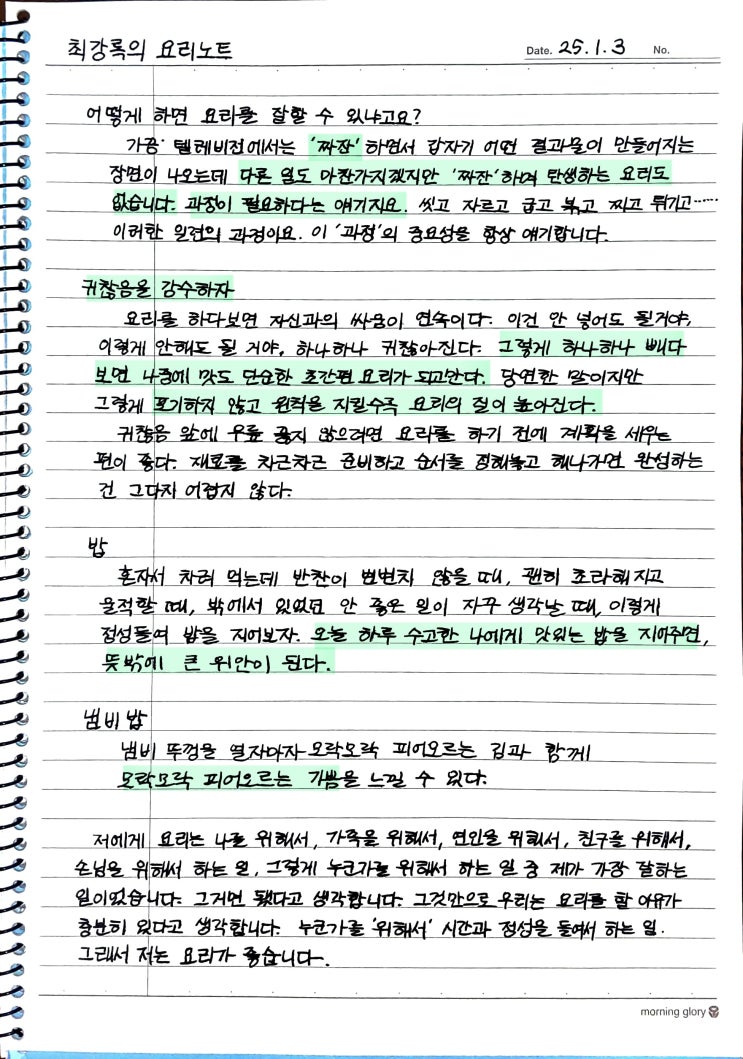 최강록의 요리노트
Date. 25.1.3 No.
어떻게 하면 요리를 잘할 수 있냐고요?
가끔 텔레비전에서는 '짜잔' 하면서 갑자기 어떤 결과물이 만들어지는
장면이 나오는데 다른 일도 마찬가지겠지만 '짜잔'하며 탄생하는 요리도
없습니다. 과정이 필요하다는 얘기지요. 씻고 자르고 굽고 볶고 찌고 튀기고……
이러한 일련의 과정이요. 이 '과정'의 중요성을 항상 얘기합니다.
귀찮음을 감수하자
요리를 하다보면 자신과의 싸움이 연속이다. 이건 안 넣어도 될거야,
이렇게 안해도 될 거야, 하나하나 귀찮아진다. 그렇게 하나하나 빼다
보면 나중에 맛도 단순한 초간편 요리가 되고만다. 당연한 말이지만
그렇게 포기하지 않고 원칙을 지킬수록 요리의 질이 높아진다.
귀찮음 앞에 무릎 꿇지 않으려면 요리를 하기 전에 계획을 세우는
편이 좋다. 재료를 차근차근 준비하고 순서를 정해놓고 해나가면 완성하는
건 그다지 어렵지 않다.
밥
혼자서 차려 먹는데 반찬이 변변치 않을 때, 괜히 초라해지고
울적할 때, 밖에서 있었던 안 좋은 일이 자꾸 생각날 때, 이렇게
정성들여 밥을 지어보자. 오늘 하루 수고한 나에게 맛있는 밥을 지어주면,
뜻밖에 큰 위안이 된다.
냄비밥
냄비 뚜껑을 열자마자 모락모락 피어오르는 김과 함께
모락모락 피어오르는 기쁨을 느낄 수 있다.
저에게 요리는 나를 위해서, 가족을 위해서, 연인을 위해서, 친구를 위해서,
손님을 위해서 하는 일, 그렇게 누군가를 위해서 하는 일 중 제가 가장 잘하는
일이었습니다. 그거면 됐다고 생각합니다. 그것만으로 우리는 요리를 할 이유가
충분히 있다고 생각합니다. 누군가를 '위해서' 시간과 정성을 들여서 하는 일.
그래서 저는 요리가 좋습니다.
morning glory